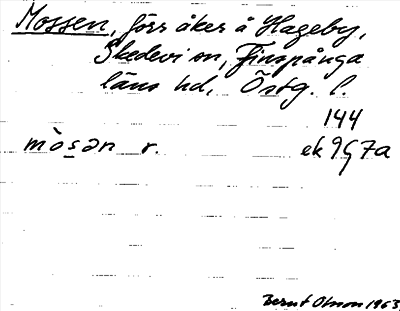 Mossen, förr åker å Hageby,
Skedevi sn, Finspånga
läns hd, Östg. l.
144
mo̊sən r. ek 9G7a
Bernt Olsson 1963